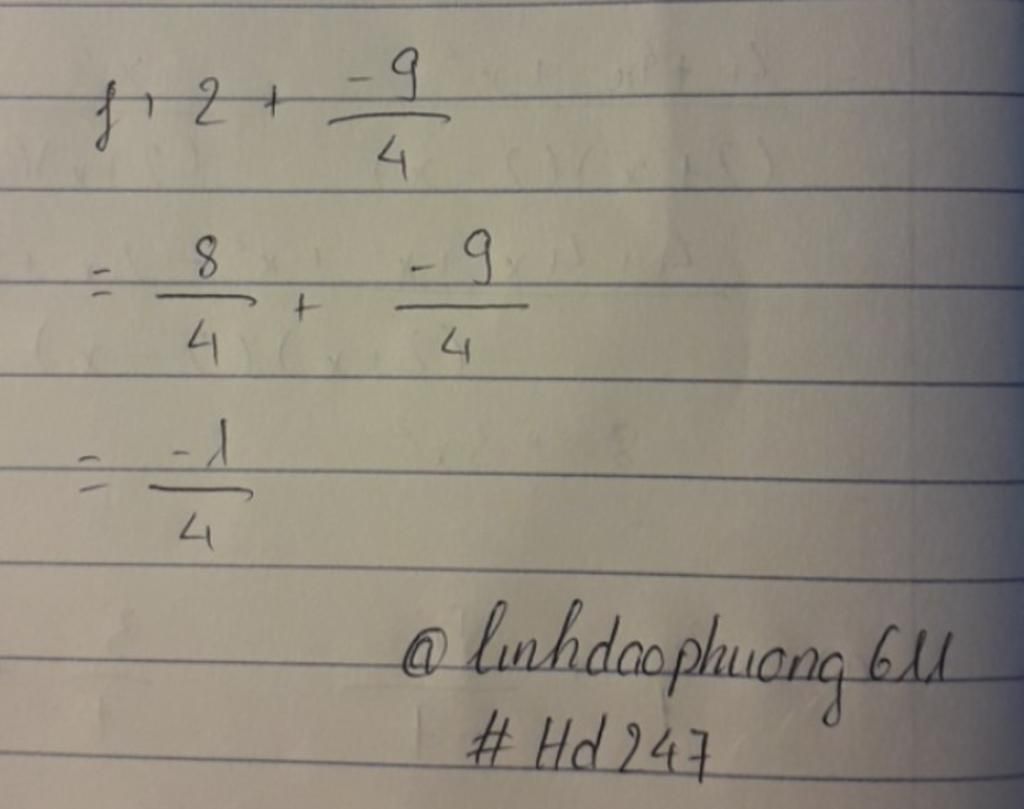 f, 2 + -9/4
= 8/4 + -9/4
= -1/4
@ linhdaophuong611
# Hd247